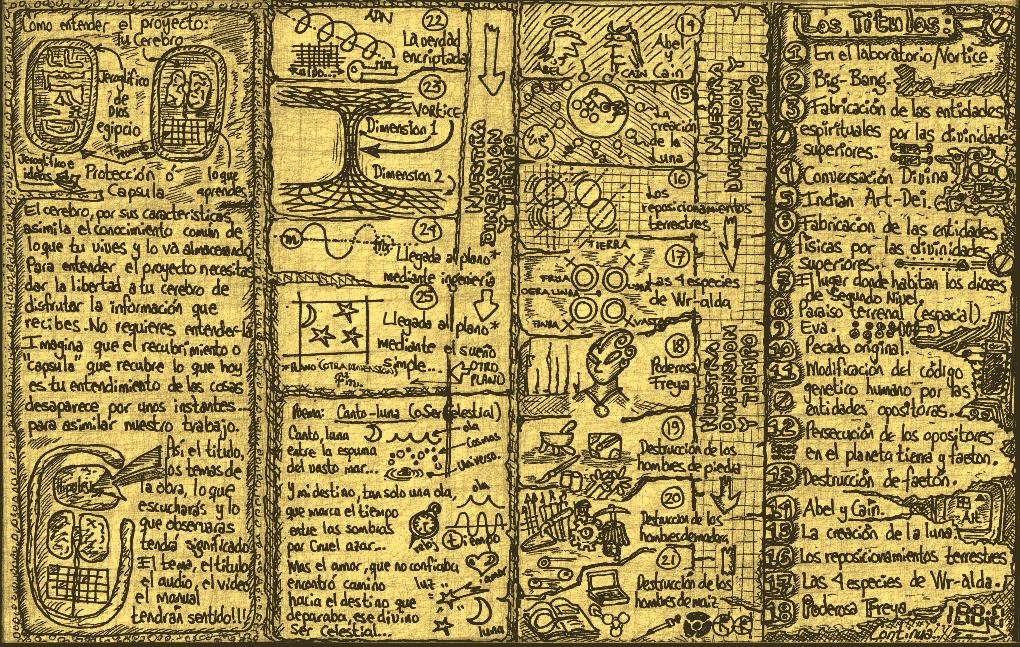 Como entender el proyecto:
Tu Cerebro
Jeroglifico
de
Dios
egipcio
Protección ó
Capsula
lo que
aprendes
El cerebro, por sus caracteristicas
asimila el conocimiento común de
lo que tu vives y lo va almacenando
Para entender el proyecto necesitas
dar la libertad a tu cerebro de
disfrutar la información que
recibes. No requieres entenderla
Imagina que el recubrimiento o
"capsula" que recubre lo que hoy
es tu entendimiento de las cosas
desaparece por unos instantes...
para asimilar nuestro trabajo.
Así el titulo,
los temas de
la obra, lo que
escucharás y lo
que observaras
tendrá significado
El tema, el titulo
el audio, el video
el manual
tendrán sentido!!!
ADN
22
La verdad
encriptada
23
VORTICE
Dimension 1
Dimension 2
24
Llegada al plano*
mediante ingenieria
25
Llegada al plano*
mediante el sueño
simple...
*PLANO (OTRA DIMENSION)
Fin.
OTRO
PLANO
NUESTRA
DIMENSION
Y
TIEMPO
Poema: Canto-luna (o Ser Celestial)
Canto, luna
entre la espuma
del vasto mar...
ola
Cosmos
Universo.
Y mi destino, tan solo una ola,
que marca el tiempo
entre las sombras
por cruel azar...
ola
tiempo
Mas el amor, que no confiaba
encontró camino
hacia el destino que
deparaba, ese divino
Ser Celestial...
amor
luz
luna
14
ABEL
CAIN
Abel
y
Cain
15
La
creación
de la
Luna
16
Los
reposicionamientos
terrestres
TIERRA
17
FREYA
Las 4 especies
de Wr-alda
18
Poderosa
Freya
19
Destrucción de los
hombres de piedra
20
Destruccion de los
hombres de madera
21
Destrucción de los
hombres de maiz
NUESTRA
DIMENSION Y
TIEMPO
NUESTRA
DIMENSION Y
TIEMPO
Los Títulos:
1 En el laboratorio/Vortice.
2 Big-Bang.
3 Fabricación de las entidades
espirituales por las divinidades
superiores.
4 Conversación Divina
5 Indian Art-Dei.
6 Fabricación de las entidades
físicas por las divinidades
superiores.
7 El lugar donde habitan los dioses
de Segundo Nivel.
8 Paraiso terrenal (espacial).
9 Eva.
10 Pecado original.
11 Modificación del código
genetico humano por las
entidades opositoras.
12 Persecución de los opositores
en el planeta tierra y faeton.
13 Destrucción de faetón.
14 Abel y Cain.
15 La creación de la luna.
16 Los reposicionamientos terrestres
17 Las 4 especies de Wr-alda.
18 Poderosa Freya
Continua...